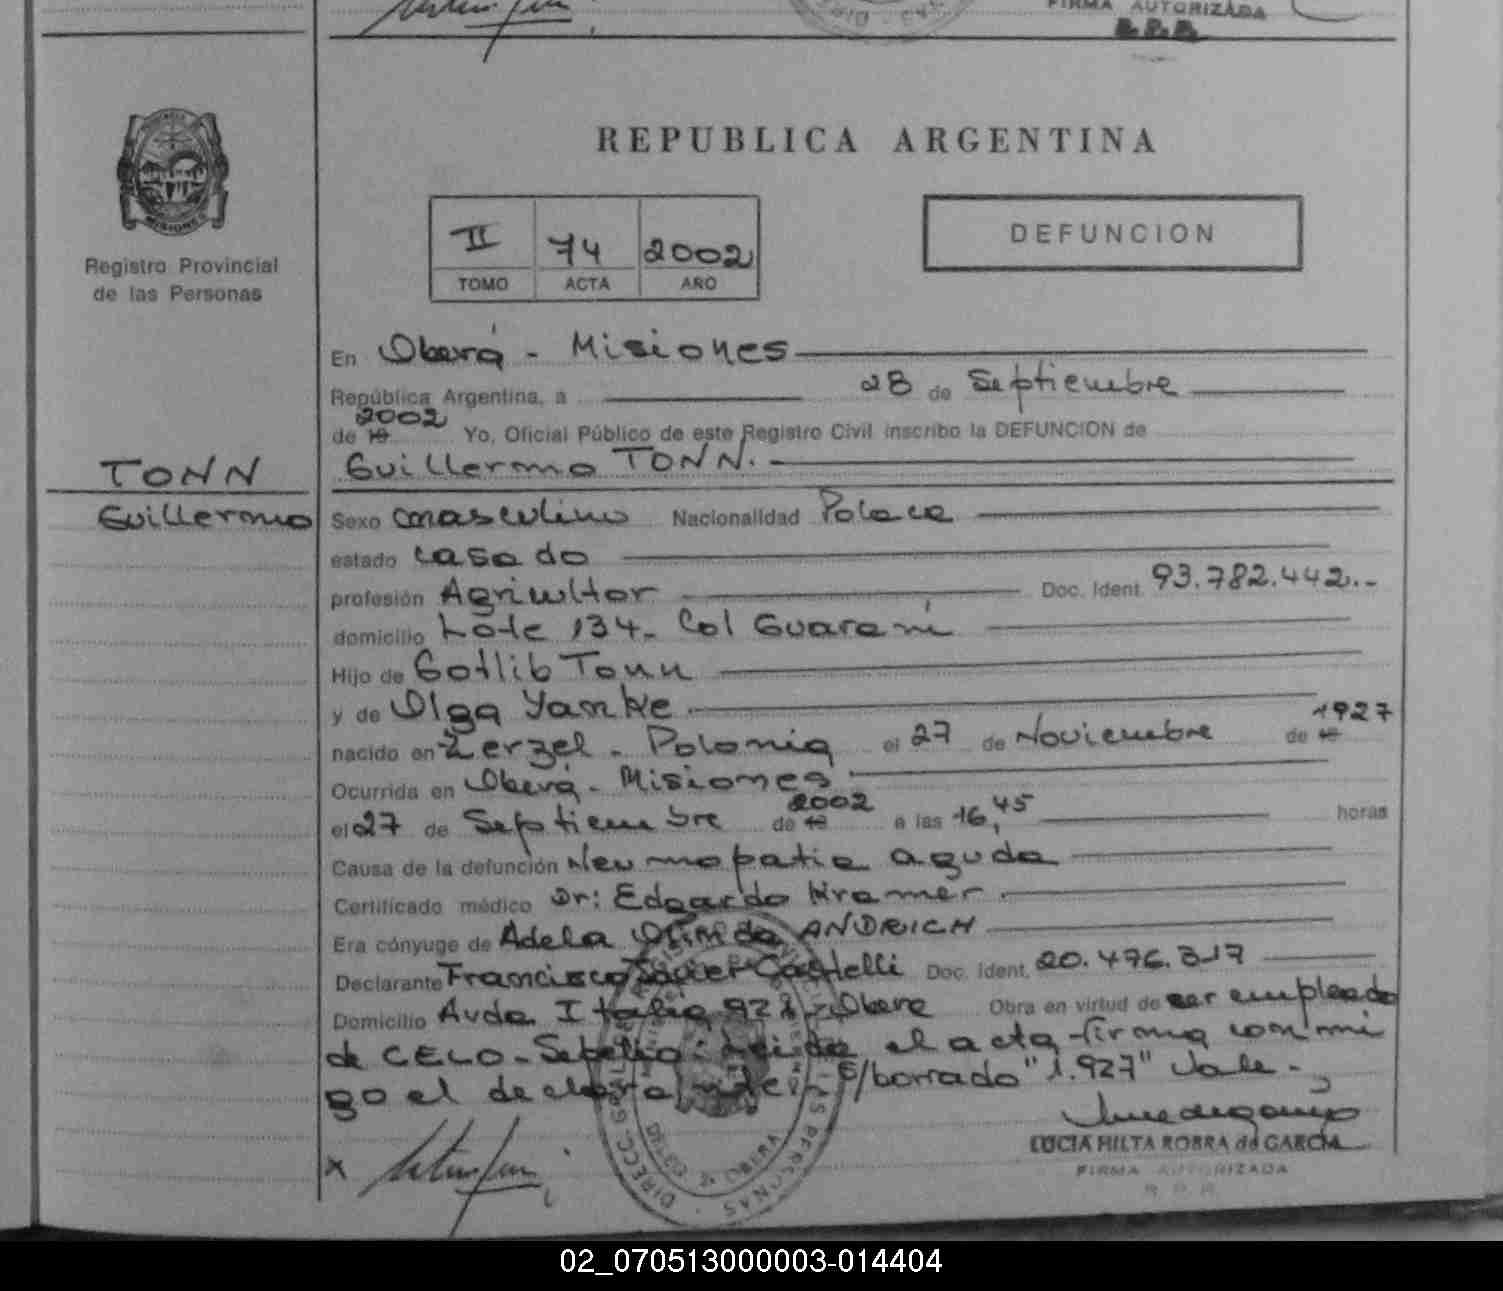 FIRMA AUTORIZADA
R.P.P.
REPUBLICA ARGENTINA
MISIONES
Registro Provincial
de las Personas
II 74 2002
TOMO ACTA AÑO
DEFUNCION
En Oberá - Misiones
República Argentina, a 28 de Septiembre
2002
de 19 Yo, Oficial Público de este Registro Civil inscribo la DEFUNCION de
TONN Guillermo TONN.
Guillermo Sexo masculino Nacionalidad Polaca
estado casado
profesión Agricultor Doc. Ident. 93.782.442.-
domicilio Lote 134- Col Guaraní
Hijo de Gotlib Tonn
y de Olga Yanke
1927
nacido en Zerzel - Polonia el 27 de Noviembre de 19
Ocurrida en Oberá - Misiones
2002
el 27 de Septiembre de 19 a las 16,45 horas
Causa de la defunción Neumopatia aguda
Certificado médico Dr: Edgardo Kramer.
Era cónyuge de Adela Olinda ANDRICH
Declarante Francisco Javier Castelli Doc. Ident. 20.476.317
Domicilio Avda Italia 928 - Obera Obra en virtud de ser empleado
de CELO - Sepelio: leida el acta firma conmi
go el declarante - S/borrado "1.927" Vale -
LUCIA HILTA ROBRA de GARCIA
X FIRMA AUTORIZADA
R.P.P.
02_070513000003-014404